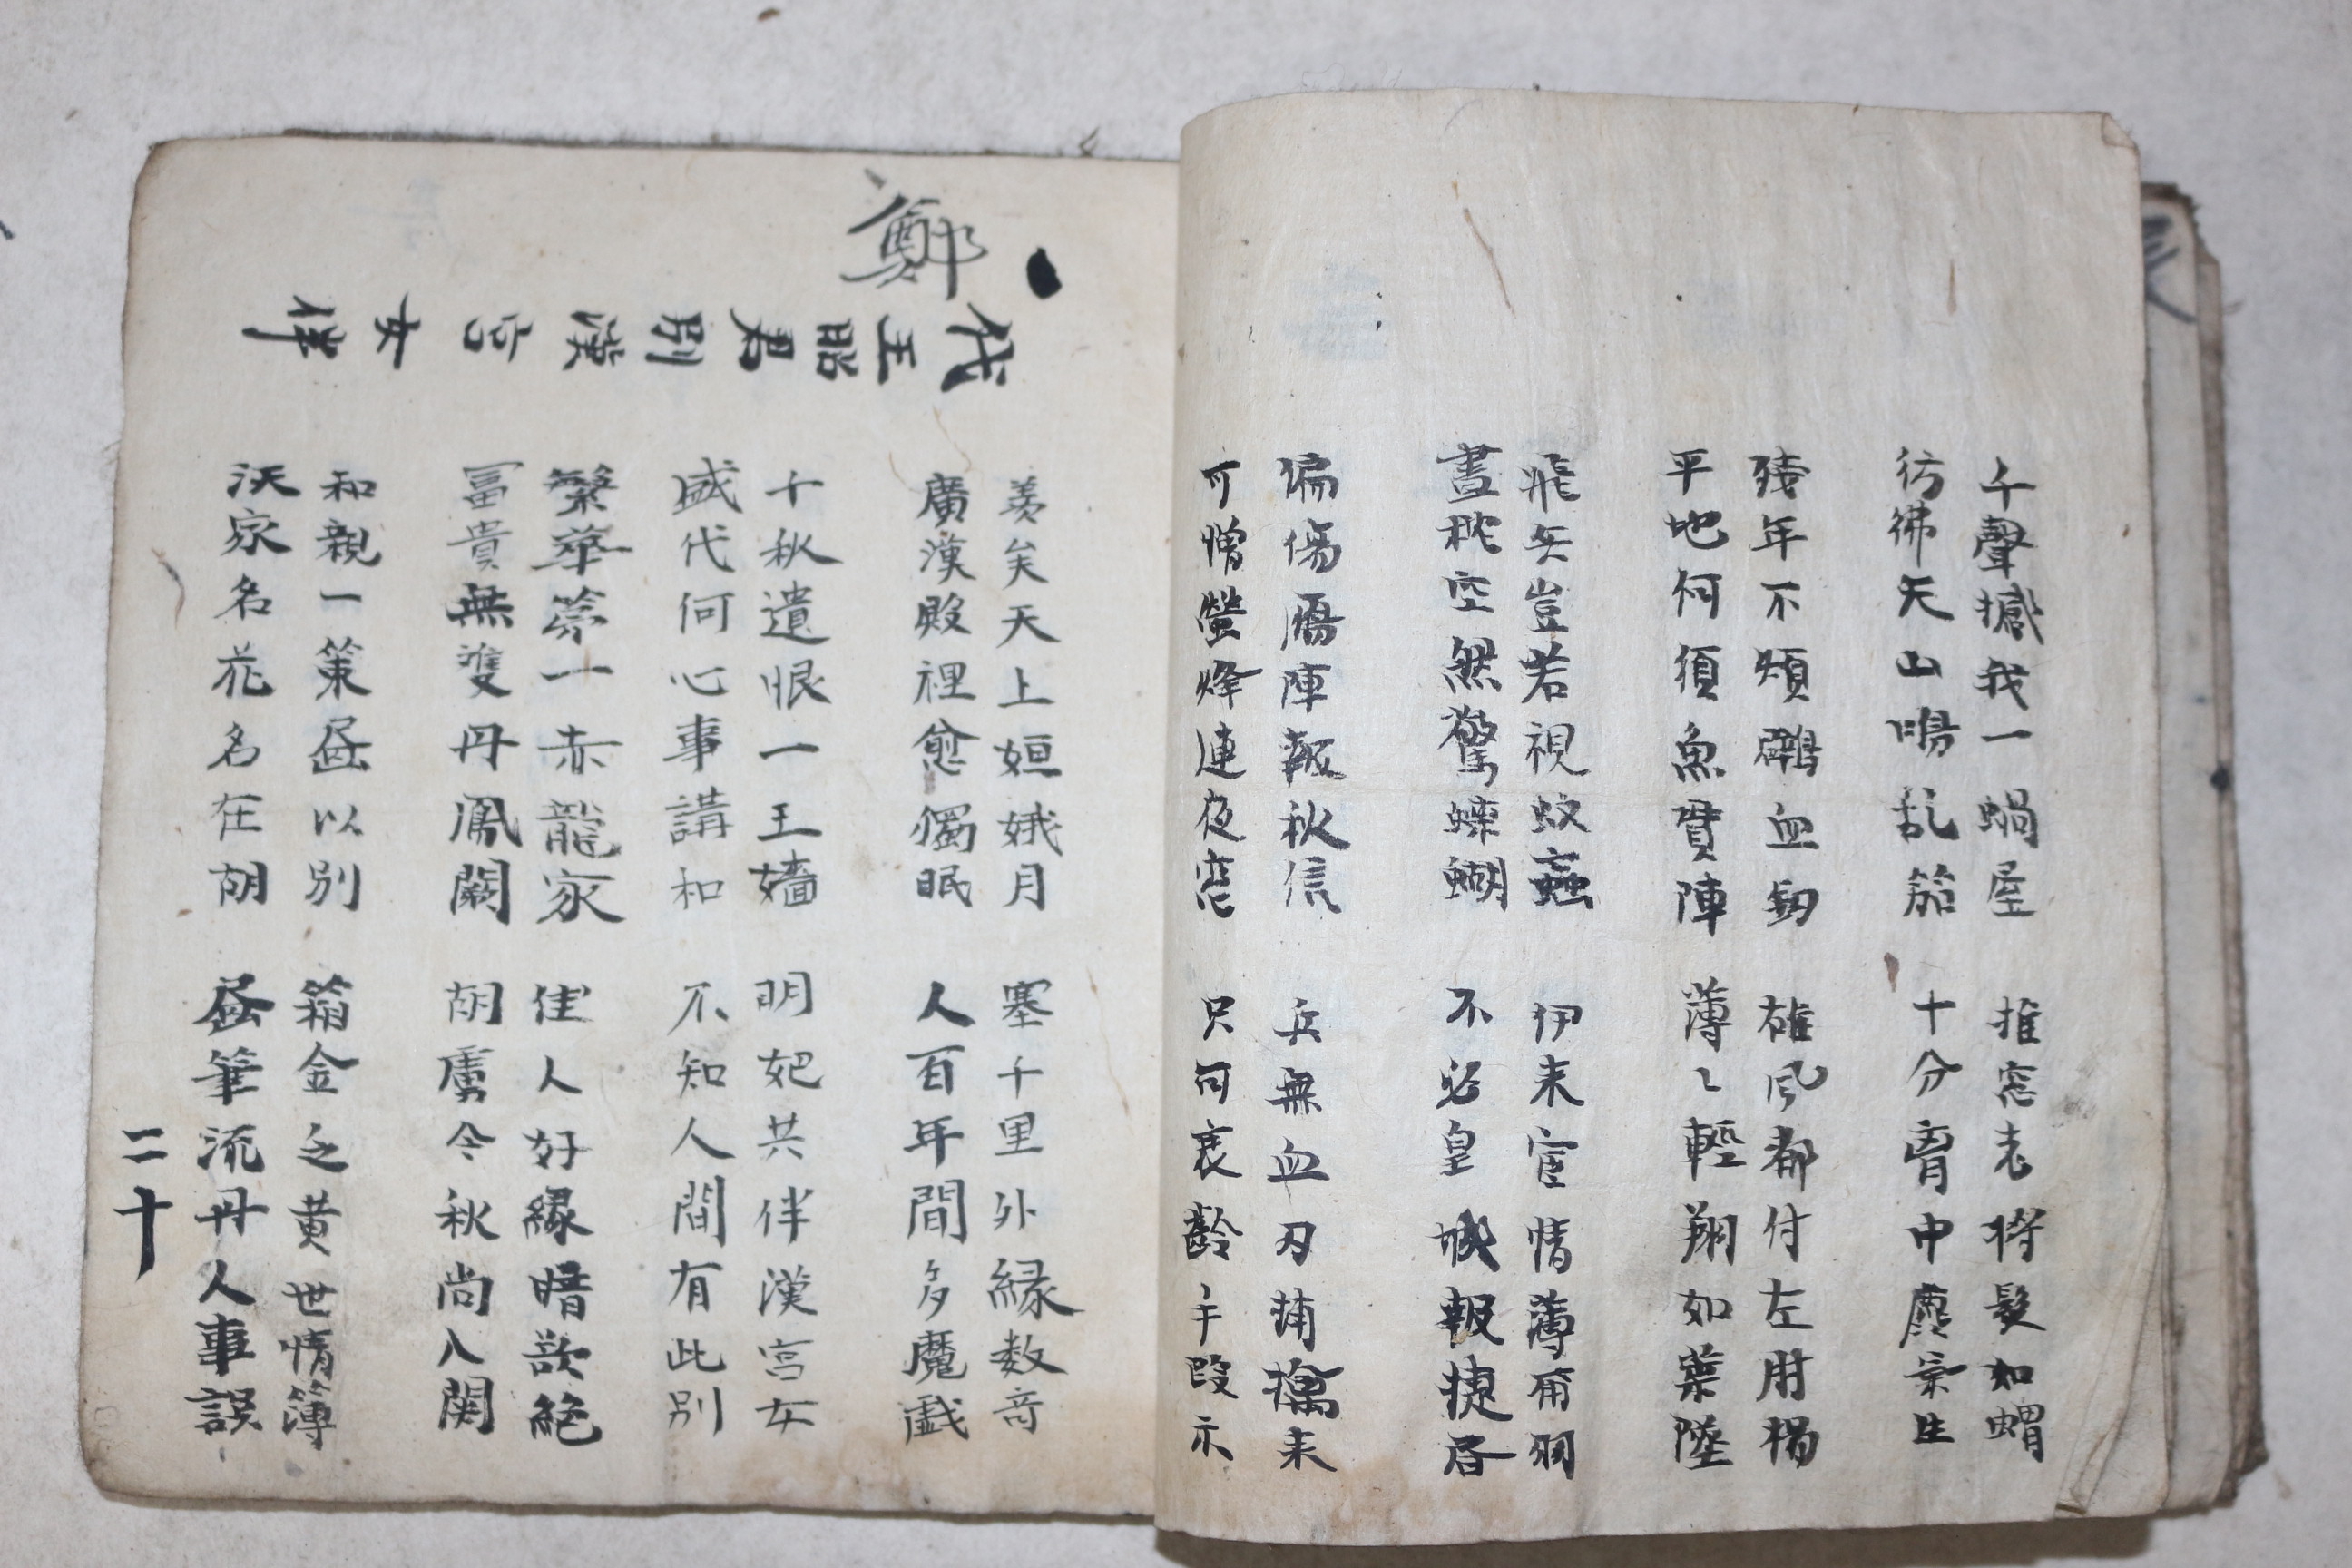 千聲撼我一蝸屋 推窓志將髮如蝟
彷彿天山鳴乱笳 十分胷中塵宗生
殘年不煩鸊血釼 雄風都付左肘楊
平地何須魚貫陣 薄〻輕翔如葉陸
飛兵豈若視蚊蝱 伊来宦情薄甭羽
晝枕空然驚蝶蝴 不必皇城報捷居
偏傷鴈陣報秋信 兵無血刃捕擒来
可憎螢烽連夜窓 只何衰齡手段示
鄭
代王昭君別漢宮女伴
羨矣天上姮娥月 塞千里外緣数奇
廣漢殿裡愈獨眠 人百年間多魔戱
千秋遺恨一王嬙 明妃共伴漢宮女
盛代何心事講和 不知人間有此別
繁華夢一赤龍家 佳人好緣暗欲絕
冨貴無雙丹鳳闕 胡虜今秋尚入関
和親一策畫以別 箱金之黃世情簿
沃家名花名在胡 畫筆流丹人事誤
二十